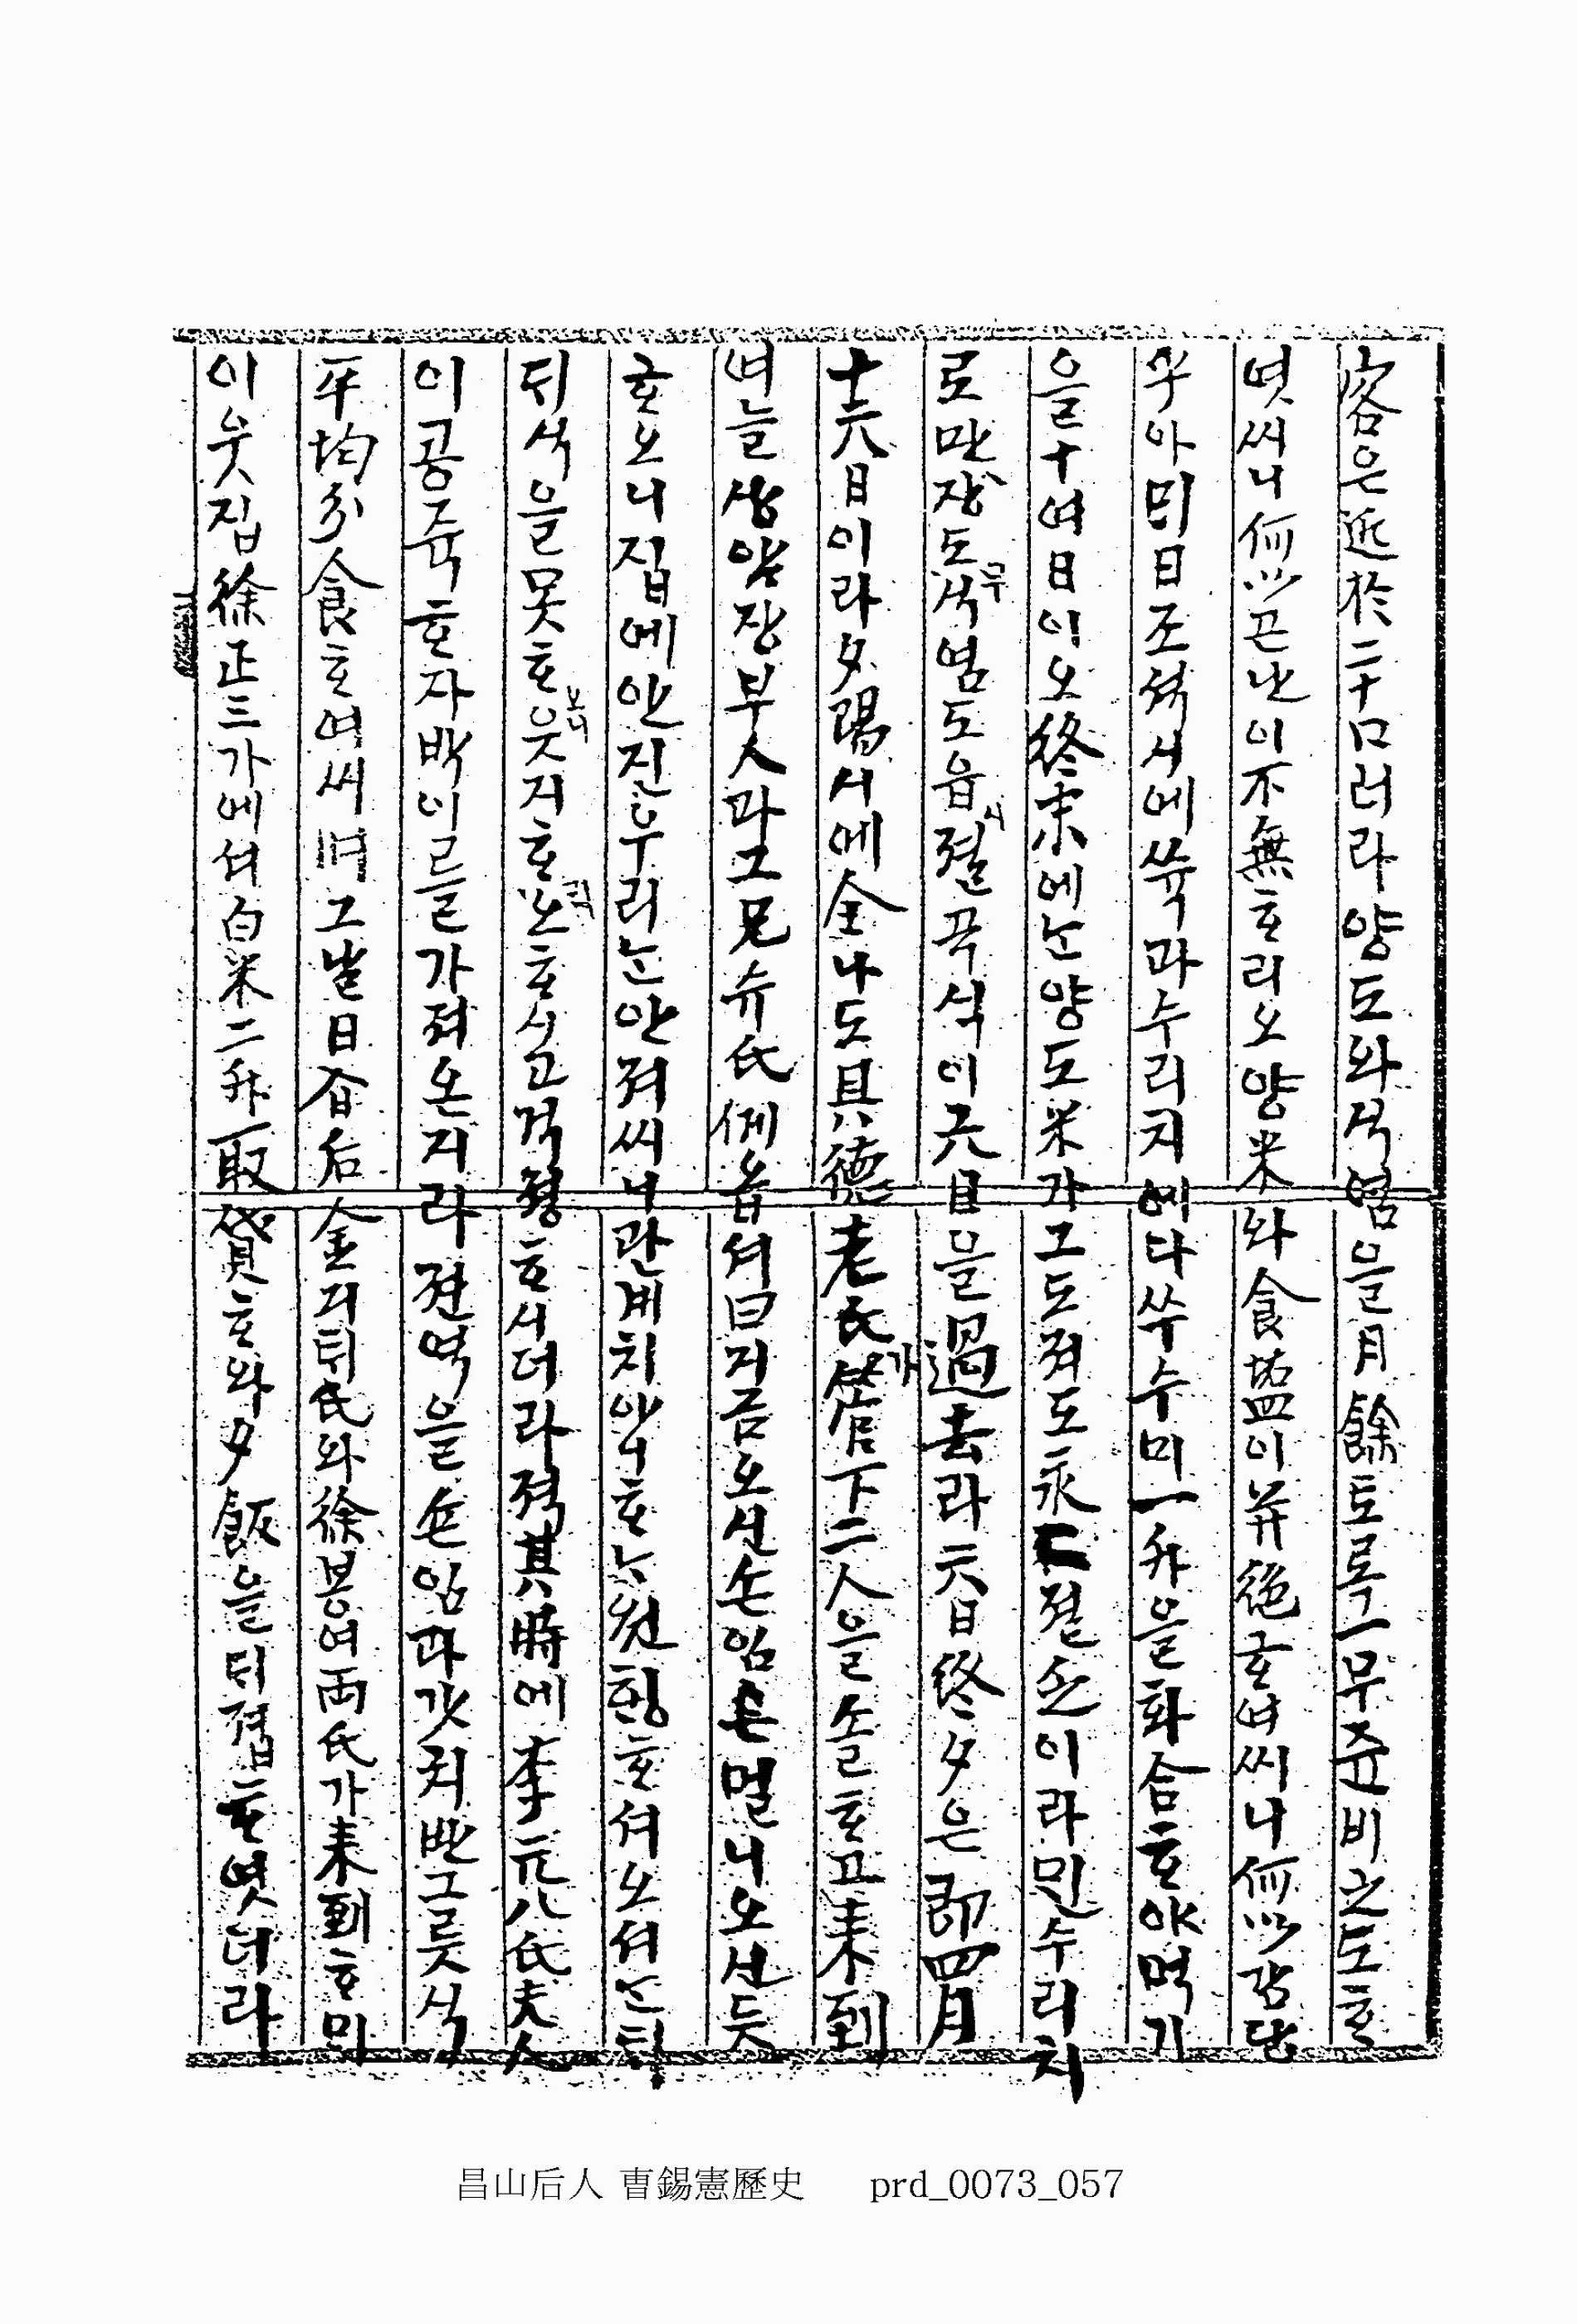 客은近於二十口러라양도와식염을月餘토록一무쥰비之도ᄒᆞ
엿씨니何以곤난이不無ᄒᆞ리오양米와食塩이並絶ᄒᆞ여씨니何以감당
우아ᄆᆡ日조셕시에쑥과수리치에다쑤수미一升을화合ᄒᆞ야먹기
을十여日이오終末에ᄂᆞᆫ양도米가그도져도永ᄃᆞ졀순이라민수리치
로만장도식염도읍졀곡식이六日을過去라六日終夕은即四月
무
시
十六日이라夕陽시에全나도具德老氏管下二人을솔ᄒᆞ고来到
가
여늘상암장부人과그兄슈氏예옵셔曰지금오신손임은멀니오신듯
ᄒᆞ오니집에안진우리ᄂᆞᆫ안져씨니관계치안ᄒᆞᄂᆞ원힝ᄒᆞ셔오셔ᄂᆞᆫᄃᆡ
ᄃᆡ식을못ᄒᆞ웃지ᄒᆞ노ᄒᆞ시고걱졍ᄒᆞ시더라젹其時에李元八氏夫人
노니
이공쥭ᄒᆞᆫ자박이를가져온지라젼역을손임과갓치ᄇᆞᆫ그릇식
平均分食ᄒᆞ여씨며그날日昏后金기ᄃᆡ氏와徐봉여両氏가来到ᄒᆞᄆᆡ
이웃집徐正三가에셔白米二升取貸ᄒᆞ와夕飯을ᄃᆡ졉ᄒᆞ엿더라
昌山后人 曺錫憲歷史 prd_0073_057